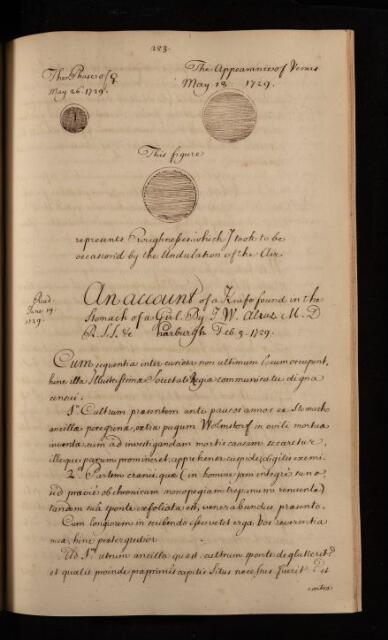 183.
The Phase of ♀
May 26. 1729.
The Appearance of Venus
May 18. 1729.
This figure
represents Roughnesses which I took to be
occasion'd by the Undulation of the Air.
Read
June 19.
1729.
An account of a Knife found in the
Stomach of a Girl. By J. W. M. D
R.S.S. &c Harburgh Feb. 3. 1729.
Cum sequentia inter curiosa non ultimum locum occupent,
hinc illa Illustrissimæ Societati Regiæ communicatu digna
censui.
1o. Cultrum præsentem ante paucos annos ex Stomacho
ancillæ peregrinæ, extra pagum Wolmstorf in ovili mortuæ
inventa, cum ad investigandam mortis causam secaretur,
illicque parum prominens, apprehensa cuspide digitis exemi.
2o. Partem cranii, quæ (in homine jam integre sano,
sed prævie ob chronicam )
tandem sua sponte exfoliata est, venerabundus præsento.
Cum longiorem in scribendo esse vetet erga Vos reverentia
mea, hinc prætergredior
Ad 1m. utrum ancilla quæst. cultrum sponte deglutierit?
et qualis proinde præprimis capitis Situs necessus fuerit? et
contra